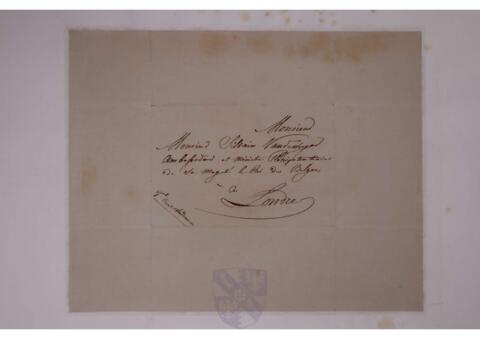 Monsieur
Monsieur Silvain Vandeweyer
Ambassadeur et ministre Plénipotentiaire
de sa Magté le Roi des Belges
à
Londres